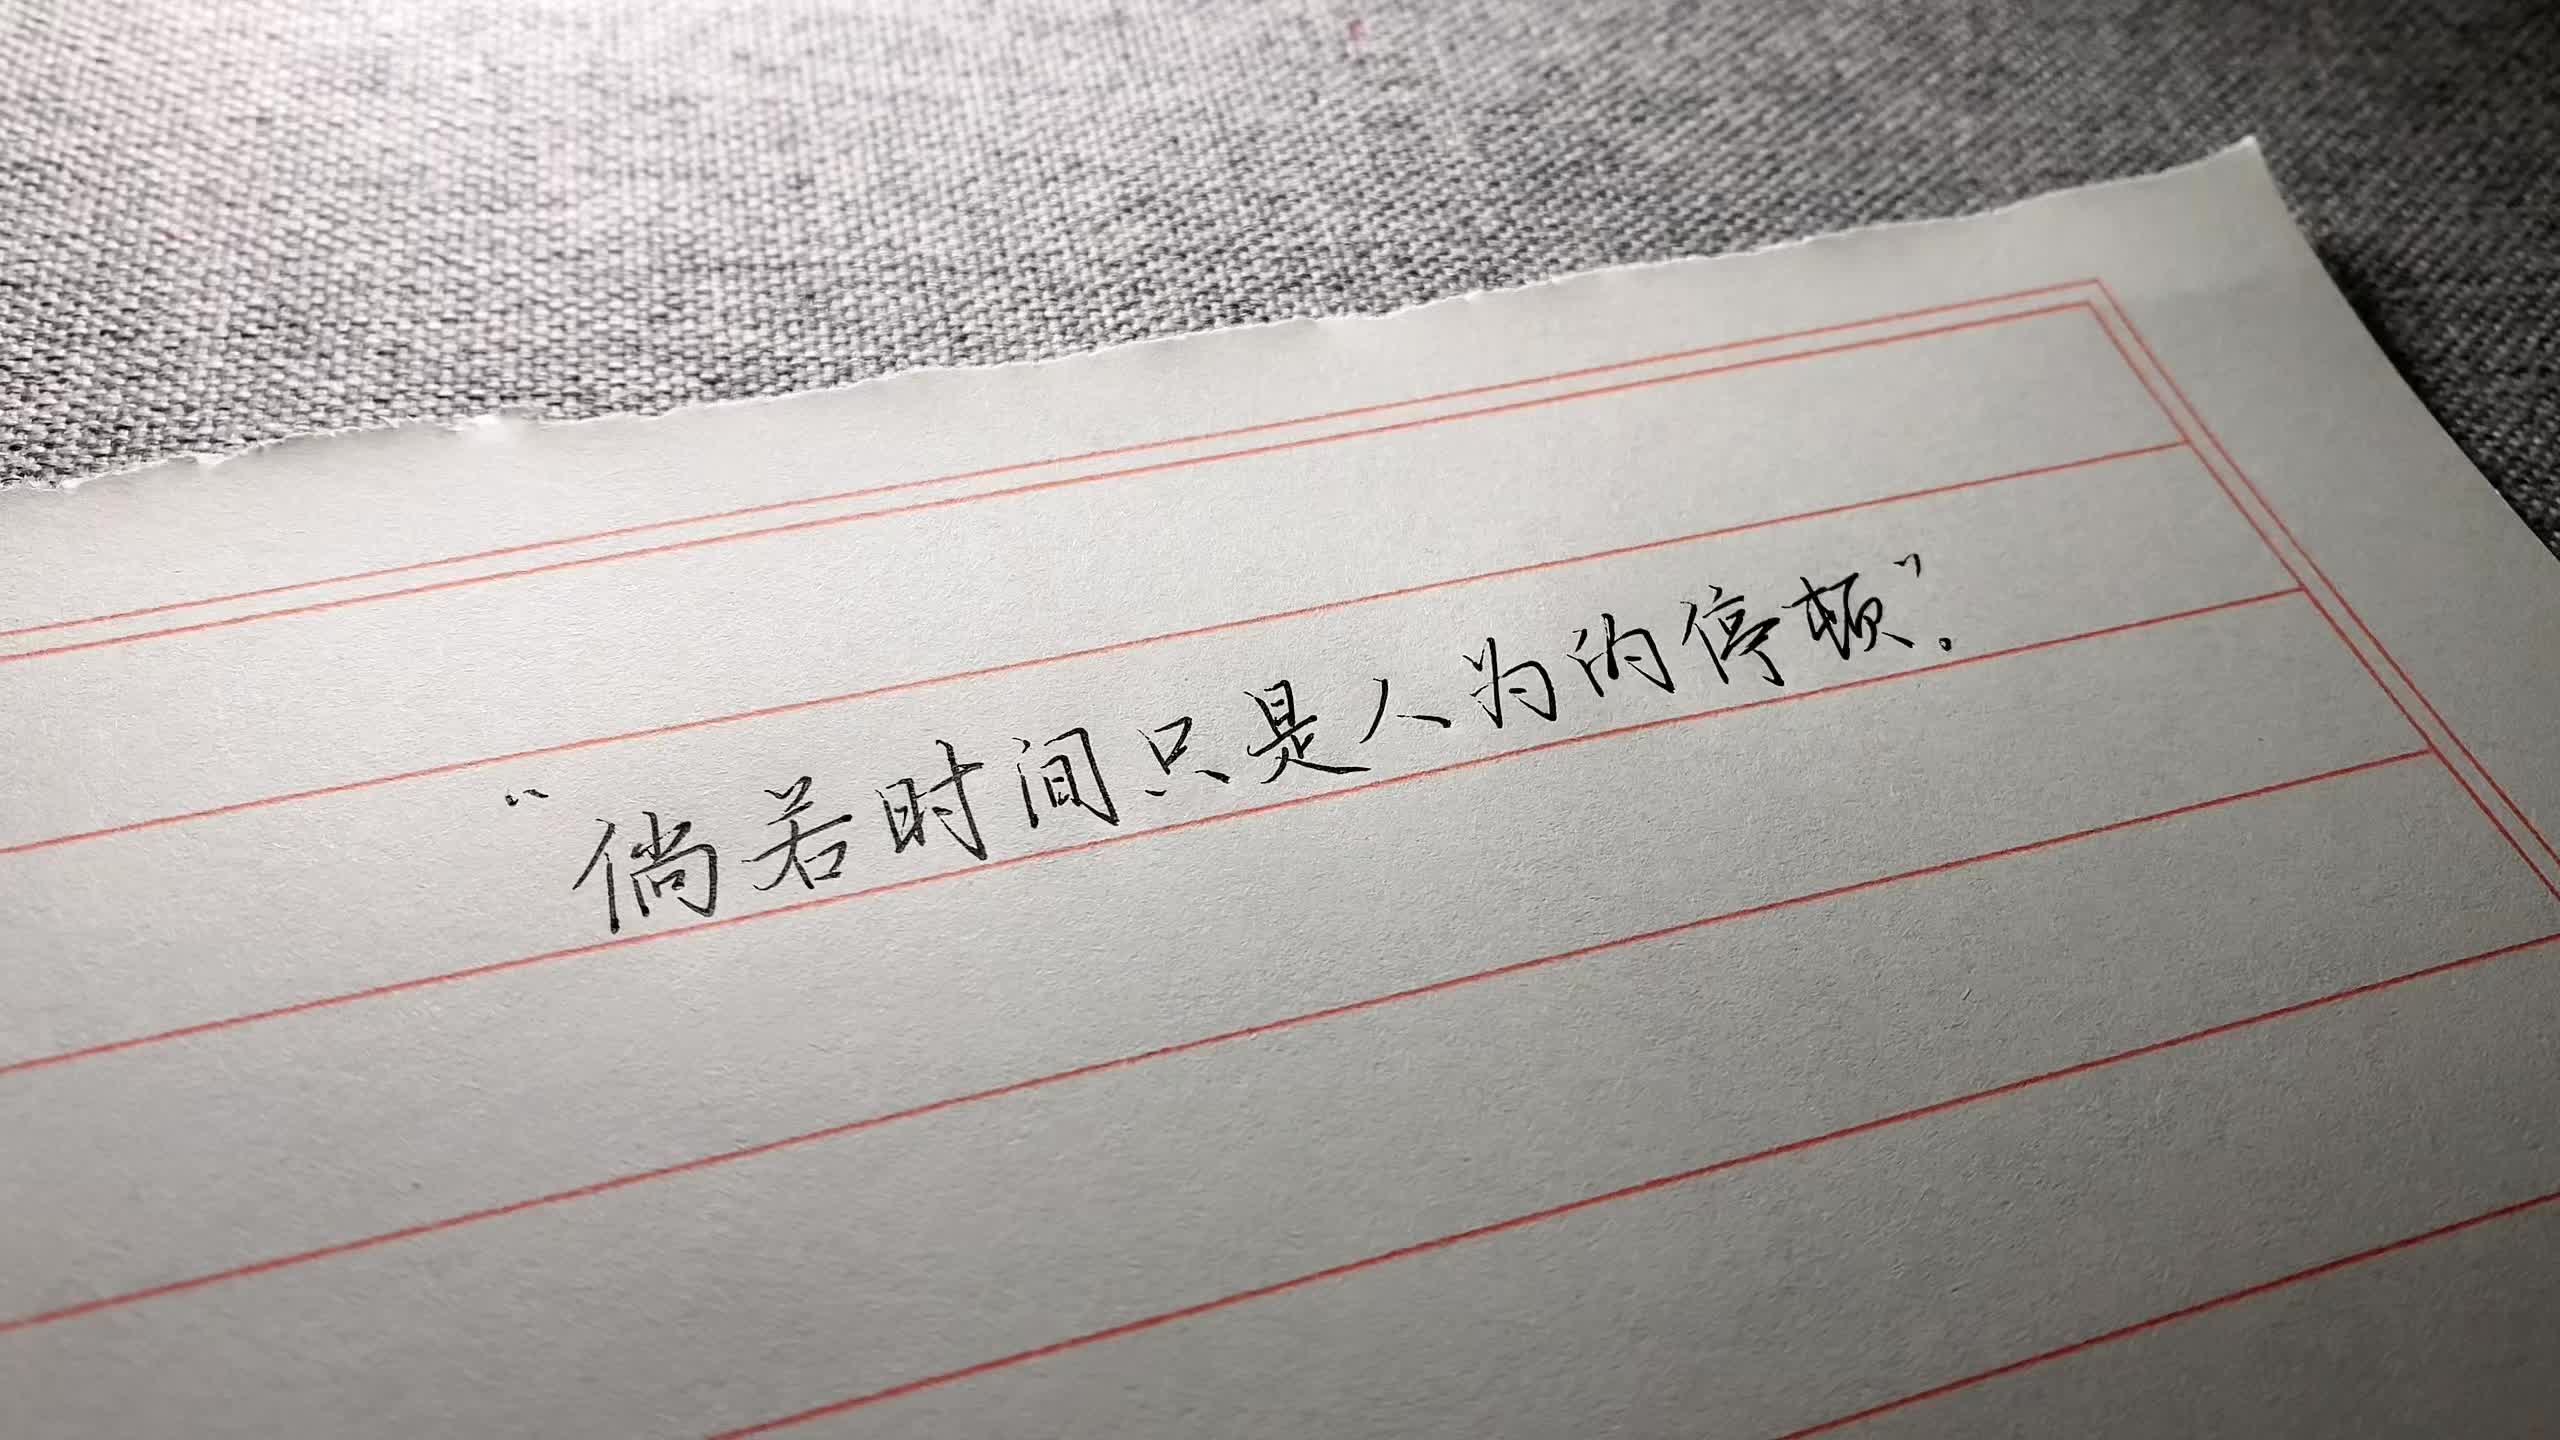 “倘若时间只是人为的停顿”.